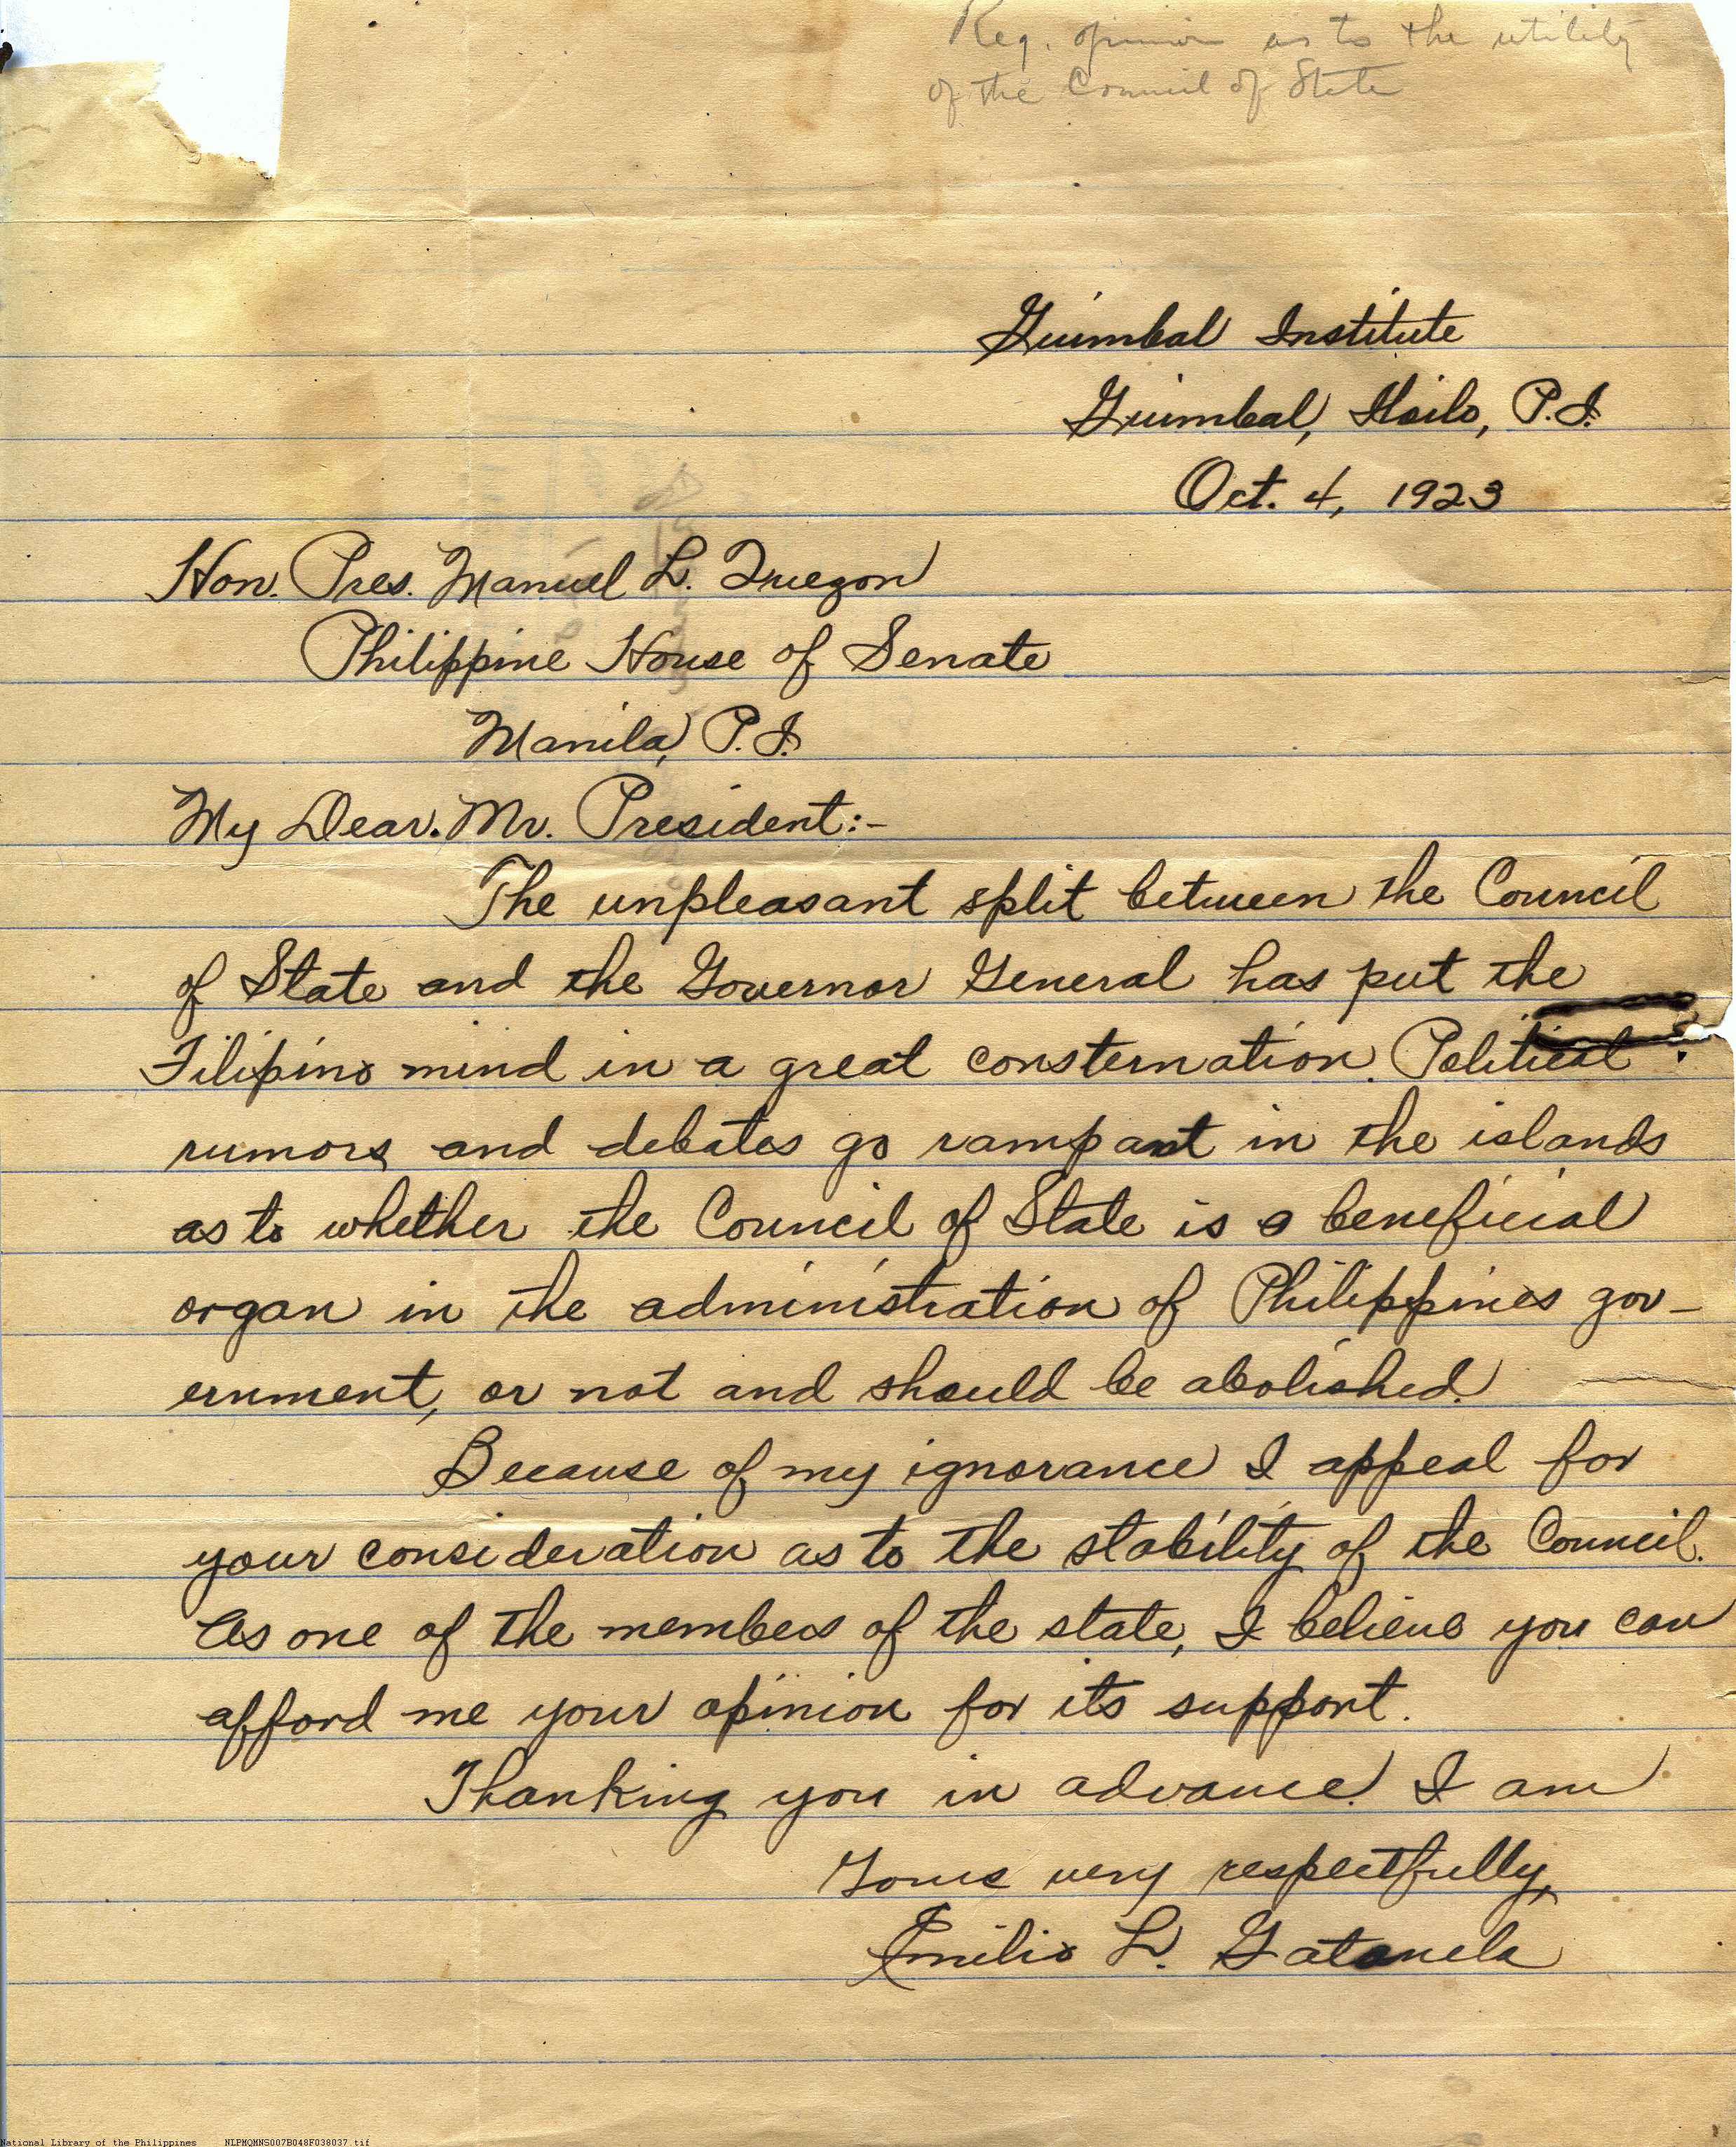 Req. opinion as to the utility
of the Council of State
Guimbal Institute
Guimbal, Iloilo, P.I.
Oct. 4, 1923
Hon. Pres. Manuel L. Quezon
Philippine House of Senate
Manila, P.I.
My Dear. Mr. President:-
The unpleasant split between the Council
of State and the Governor General has put the
Filipino mind in a great consternation. Political
rumors and debates go rampant in the islands
as to whether the Council of State is a beneficial
organ in the administration of Philippines gov-
ernment, or not and should be abolished.
Because of my ignorance I appeal for
your consideration as to the stability of the Council.
As one of the members of the state, I believe you can
afford me your opinion for its support.
Thanking you in advance. I am
Yours very respectfully,
Emilio L. Gatanela
National Library of the Philippines NLPMQMNS007B048F038037.tif